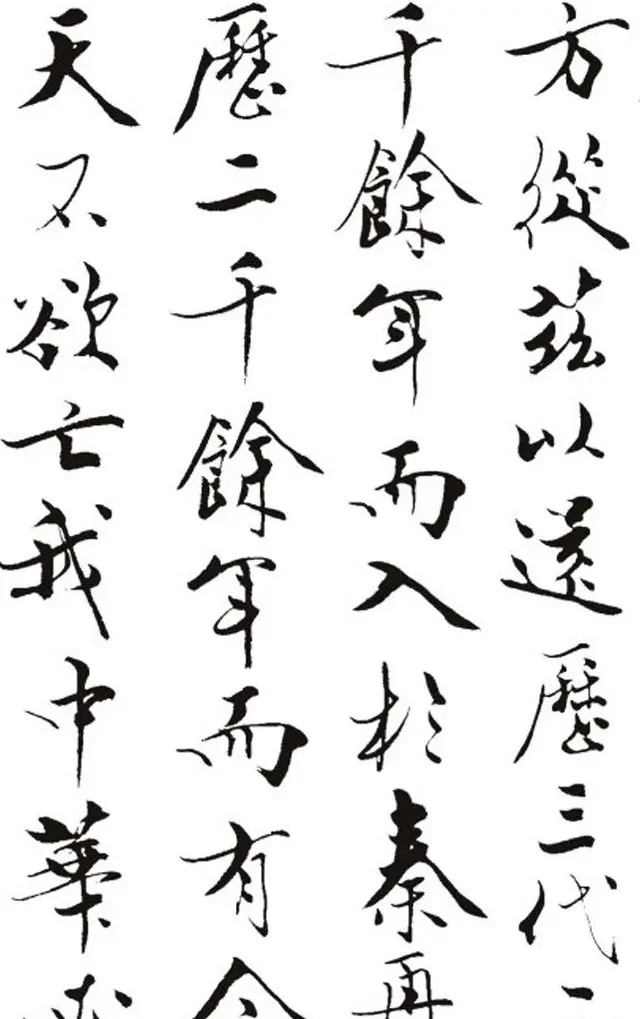 方從茲以還歷三代二
千餘年而入於秦再
歷二千餘年而有今
天不欲亡我中華